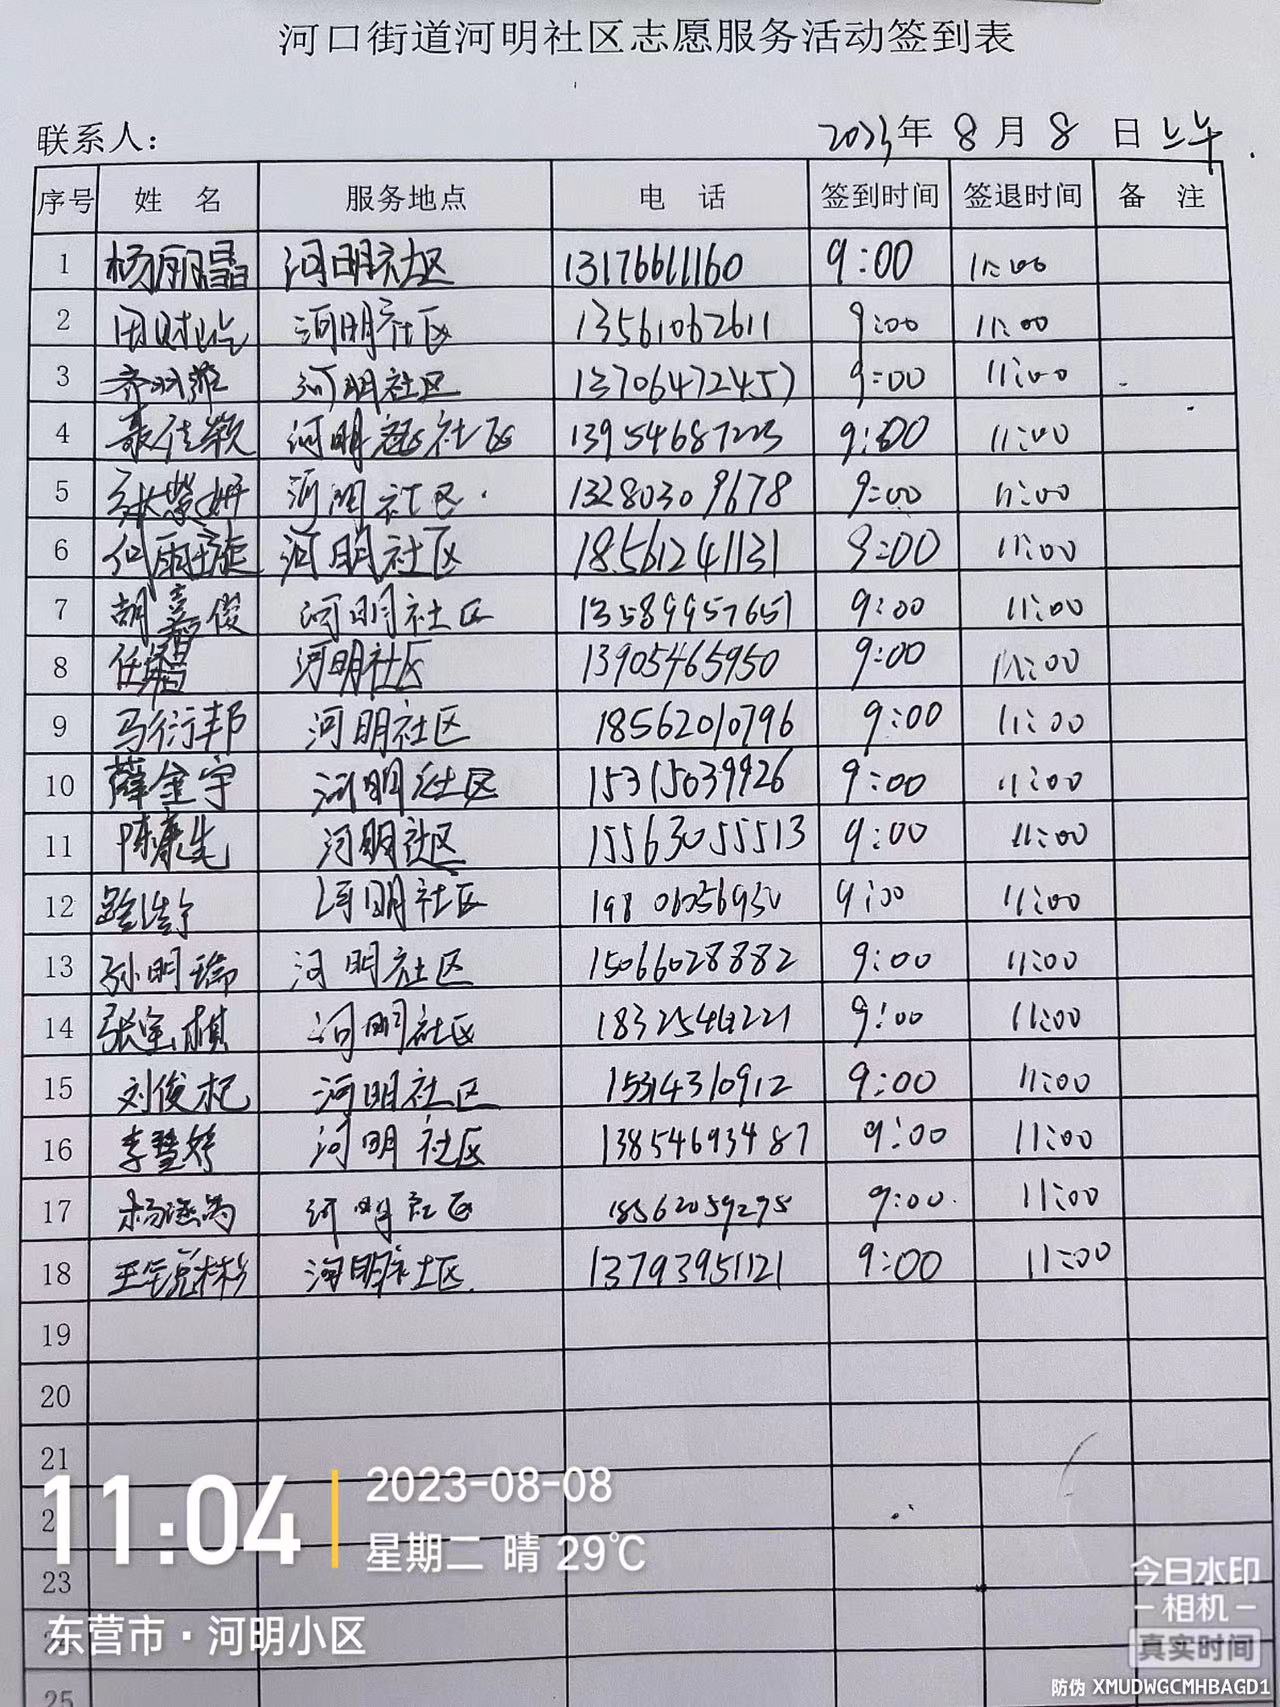 河口街道河明社区志愿服务活动签到表
联系人:
2023年 8 月 8 日 上午
序号 姓 名 服务地点 电 话 签到时间 签退时间 备 注
1 杨丽晶 河明社区 13176611160 9:00 11:00
2 河明社区 13561062611 9:00 11:00
3 河明社区 13706472457 9:00 11:00
4 河明 社区 13954687223 9:00 11:00
5 河明社区 13280309678 9:00 11:00
6 何雨璇 河明社区 18561241131 9:00 11:00
7 胡嘉俊 河明社区 13589957651 9:00 11:00
8 河明社区 13905465950 9:00 11:00
9 马衍邦 河明社区 18562010796 9:00 11:00
10 薛金宇 河明社区 15315039926 9:00 11:00
11 陈康先 河明社区 15563055513 9:00 11:00
12 河明社区 9:00 11:00
13 孙明瑞 河明社区 15066028882 9:00 11:00
14 河明社区 9:00 11:00
15 刘俊杞 河明社区 15314310912 9:00 11:00
16 李慧婷 河明社区 13854693487 9:00 11:00
17 河明社区 18562059295 9:00 11:00
18 河明社区 13793951121 9:00 11:00
19
20
21
23
25
11:04
2023-08-08
星期二 晴 29℃
东营市·河明小区
今日水印
-相机-
真实时间
防伪 XMUDWGCMHBAGD1